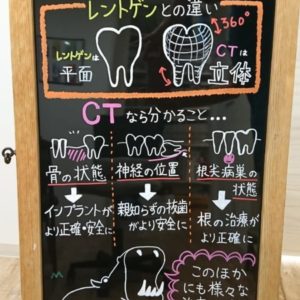 レントゲンとの違い
レントゲンは
平面
360°
CTは
立体
CTなら分かること…
骨の状態
インプラントが
より正確・安全に
神経の位置
親知らずの抜歯
がより安全に
根尖病巣の
状態
根の治療が
より正確に
このほか
にも様々な